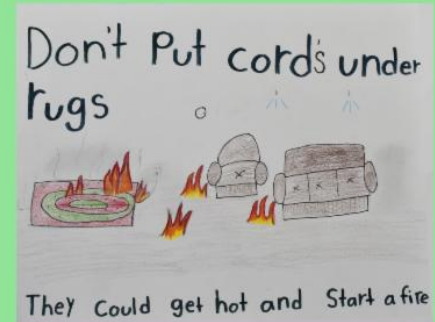 Don't Put cord's under
rugs
They Could get hot and Start a fire